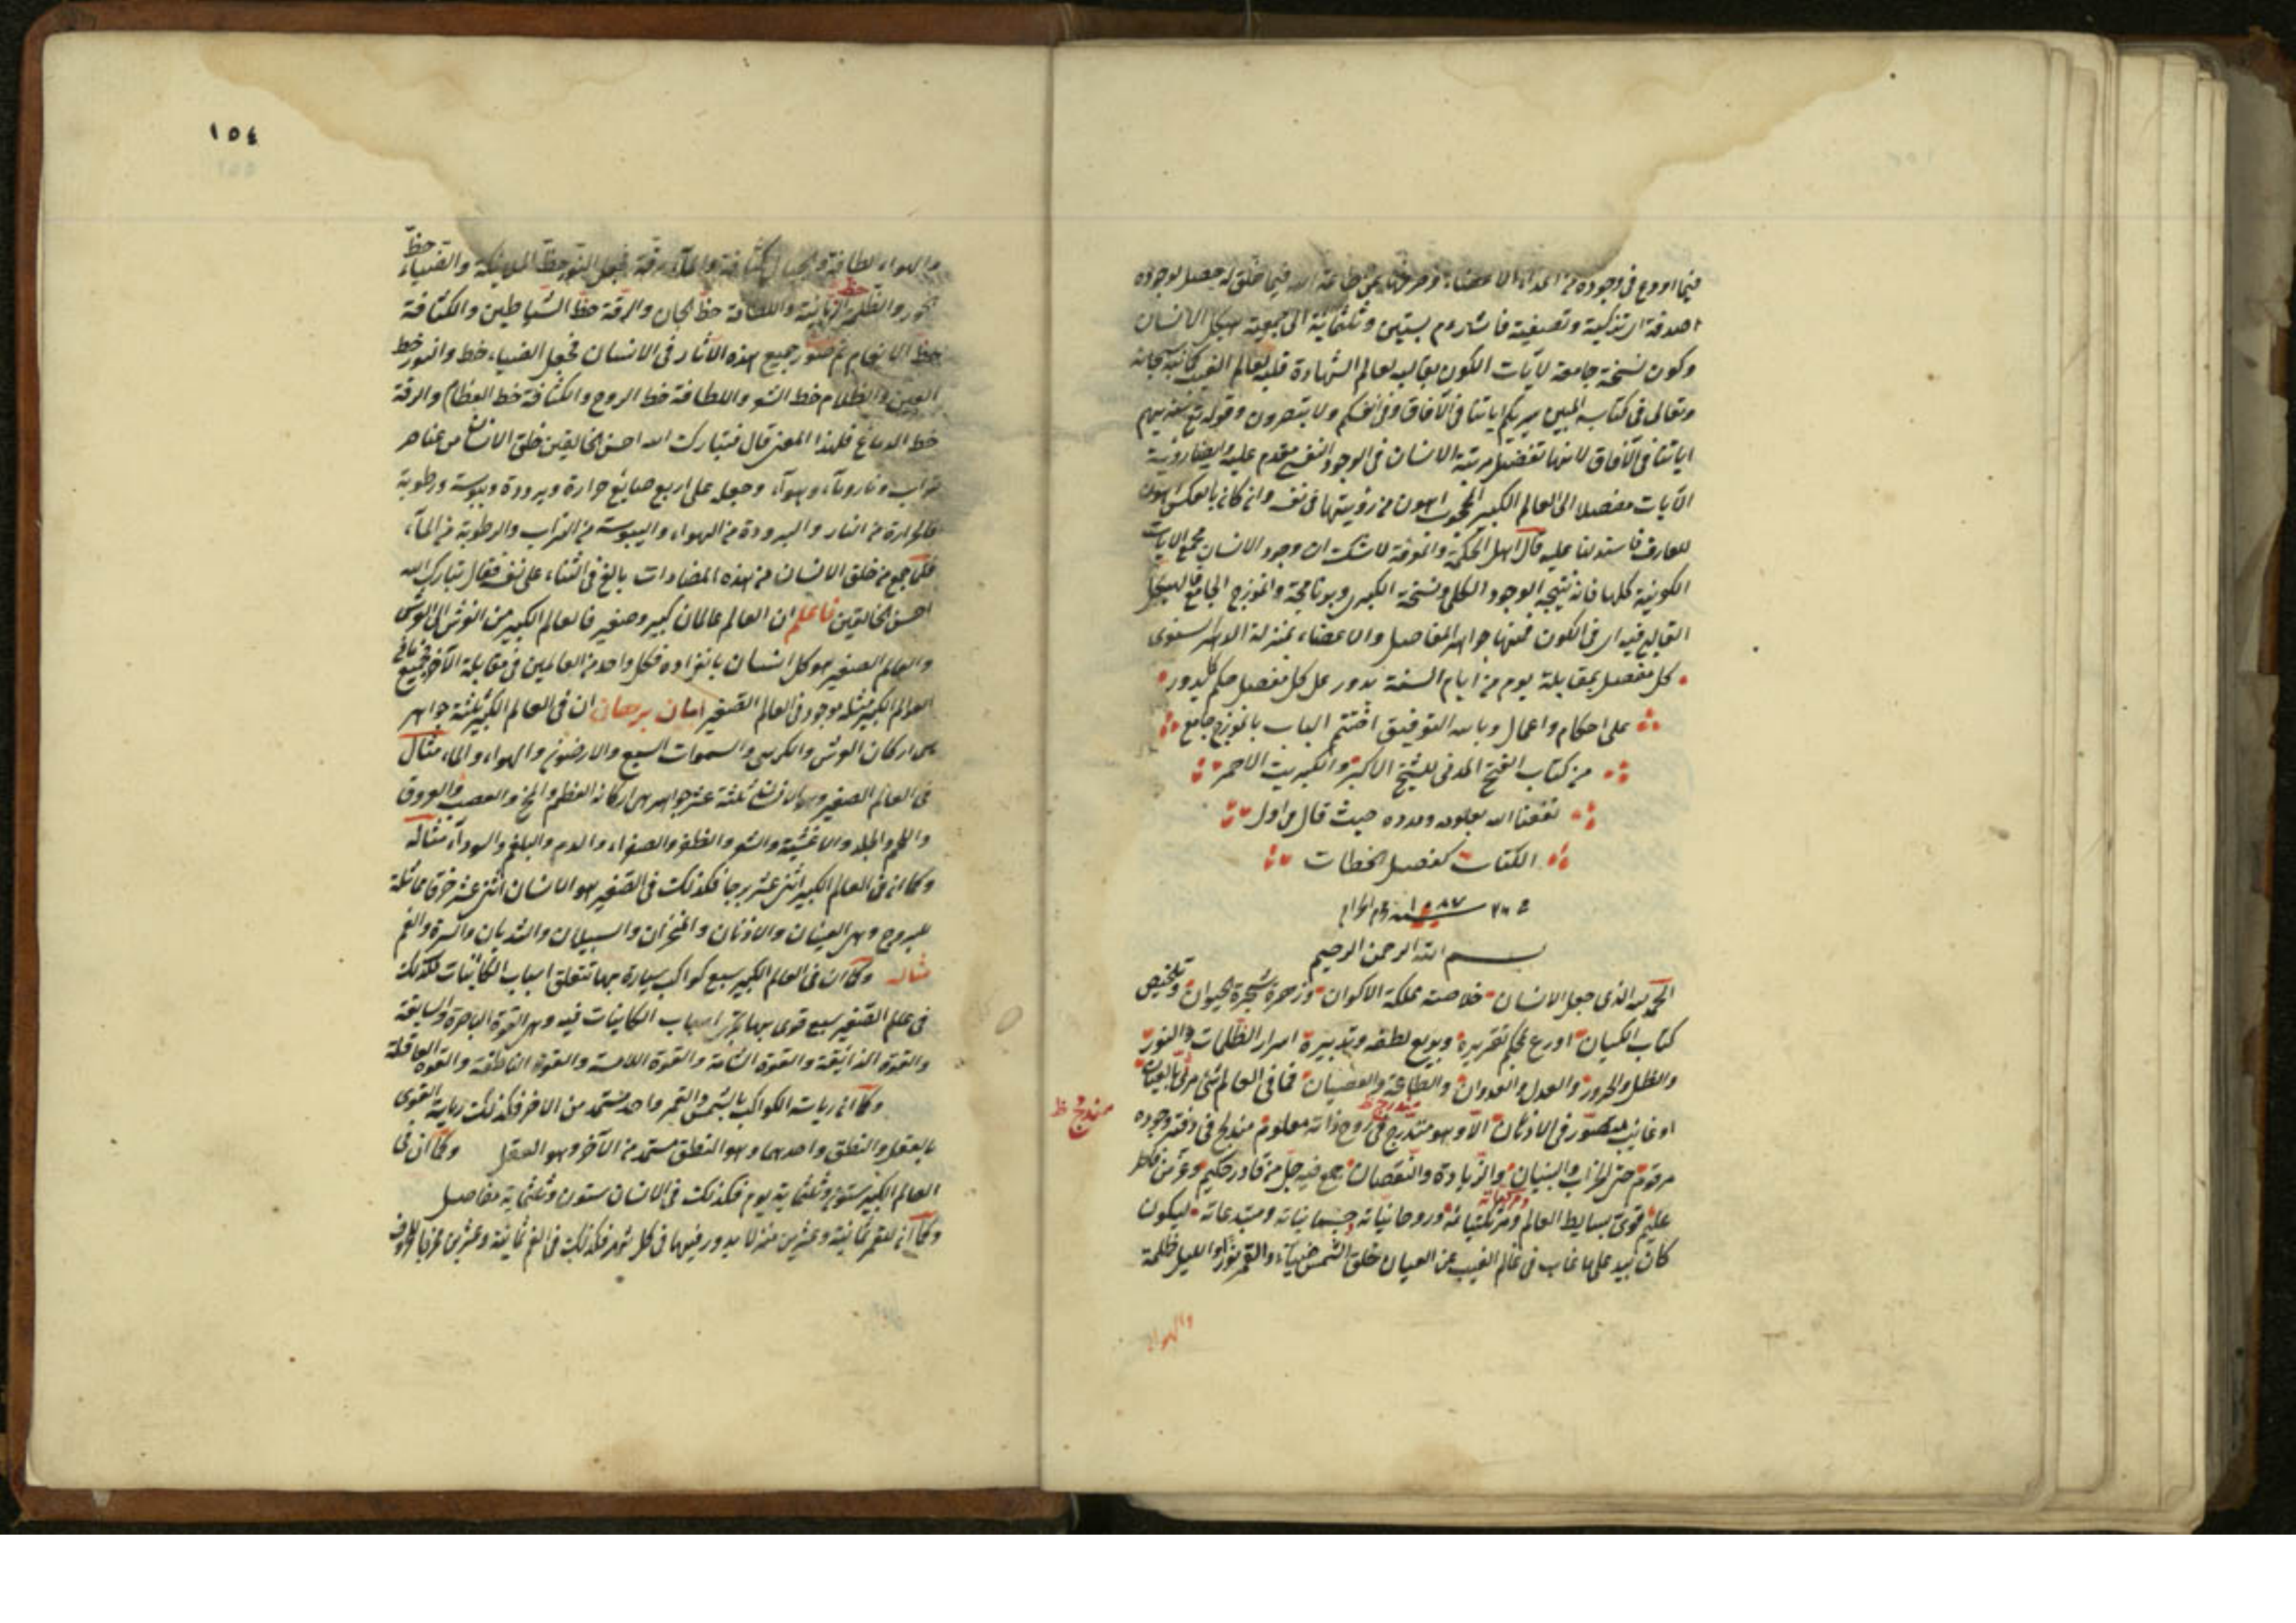 فيما اودع في وجوده من اهداء الاعضاء وصرفها عن طاعة الله فيما خلق له حصل لوجوده
صدقة اى تزكية وتصفية فاشار وم بستين وثلثمائة الى جمعية هيكل الانسان
وكون نسخة جامعة لآيات الكون بقالبه لعالم الشهادة قلبه لعالم الغيب كانبه سبحانه
وتعالى في كتابه المبين سيريكم اياتنا في الآفاق وفي انفسكم ولا تبصرون وقوله تع سنريهم
اياتنا في الآفاق لانها تفضيل مرتبة الانسان في الوجود النفسى مقدم عليه وايضا روية
الآيات مفصلا الى العالم الكبير اهون من رؤيتها في نفسه وان كان بالعكس اهون
للعارف فاستدلنا عليه قال اهل الحكمة والمعرفة لا شك ان وجود الانسان مجمع الايات
الكونية كلها فانه نتيجه الوجود الكلى ونسخة الكبرى وبرنامجة وانموذج الجامع فالهيكل
القالبى فيه اى في الكون فمنها جواهر المفاصل والاعضاء بمنزلة الدهر السنوى
كل مفصل بمقابلة يوم من ايام السنة يدور على كل مفصل حكم كل يدور
على احكام واعمال وبالله التوفيق اختتم الباب بانموذج جامع
من كتاب الفتح المدنى للشيخ الاكبر والكبريت الاحمر
نفعنا الله بعلومه ومدده حيث قال من اول
الكتاب كفصل الخطاب
بسم الله الرحمن الرحيم
الحمد لله الذى جعل الانسان خلاصة مملكة الاكوان وزهرة شجرة الحيوان وتلخيص
كتاب الكيان اودع بحكم تقديره وبديع لطفه وتدبيره اسرار الظلمات والنور
والظل والحرور والعدل والعدوان والطاعة والعصيان فما في العالم شئ مرئى بالعيان
او غائب متصور في الاذهان الا وهو مندرج في روح ذاته معلوم مندمج في دفتر وجوده
مندرج ظ
مندمج ظ
مرقوم حتى الخراب والبنيان والزيادة والنقصان جمع فيه جل من قادر حكيم وعز من
عليم قوى بسايط العالم ومركباته وروحانياته جسمانياته ومبتدعاته ليكون
كان غاب في عالم الغيب عن العيان خلق الشمس ضياء والقمر نورا والليل ظلمة
والهواء
١٥٤
والهواء لطافة والجبال كثافة والماء رقة فجعل النور حظ الملائكة والضياء حظ
الحور والظلمة حظ الزبانية واللطافة حظ الجان والرقة حظ الشياطين والكثافة
حظ الانعام ثم صور جميع هذه الآثار في الانسان فجعل الضياء خط والنور خط
العين والظلام خط الشعر واللطافة خط الروح والكثافة خط العظام والرقة
خط الدماغ فلهذا المعنى قال فتبارك الله احسن الخالقين خلق الانسان من عناصر
تراب ونار وماء وهواء وجعله على اربع صبايغ حرارة وبرودة ويبوسة ورطوبة
فالحرارة من النار والبرودة من الهواء واليبوسة من التراب والرطوبة من الماء
فلما جمع من خلق الانسان من هذه المضادات بالغ في الثناء على نفسه فقال تبارك الله
احسن الخالقين فاعلم ان العالم عالمان كبير وصغير فالعالم الكبير من الفرش الى العرش
والعالم الصغير هو كل انسان بانفراده فكل واحد من العالمين في مقابلة الآخر فجميع ما في
العوالم الكبير مثله موجود في العالم الصغير ان في العالم الكبير ثلثة جواهر
هى اركان العرش والكرسى والسموات السبع والارضون والهواء والماء مثال
في العالم الصغير وهو الانسان ثلثة عشر جواهر هى اركانه العظم والمخ والعصب والعروق
واللحم والجلد والاغشية والشعر والظفر والصفراء والدم والبلغم والسوداء مثاله
وكما ان في العالم الكبير اثنى عشر برجا فكذلك في الصغير هو الانسان اثنى عشر خرقا مماثلة
للبروج وهى العينان والاذنان والمنخران والسبيلان والثديان والسرة والفم
مثاله وكما ان في العالم الكبير سبع كواكب سيارة بها تتعلق اسباب الكائنات فكذلك
في عالم الصغير سبع قوى بها اسباب الكاينات فيه وهى القوة الباصرة والسامعة
والقوة الذائقة والقوة الشامة والقوة اللامسة والقوة الناطقة والقوة العاقلة
وكما ان رياسة الكواكب بالشمس والقمر واحد مستمد من الاخر فكذلك رياسة القوى
بالعقل والنطق واحدهما وهو النطق مستمد من الآخر وهو العقل وكما ان في
العالم الكبير ستون وثلثماية يوم فكذلك في الانسان ستون وثلثماية مفاصل
وكما ان للقمر ثمانية وعشرين منزلا يدور فيها في كل شهر فكذلك في الفم ثمانية وعشرين مخرجا للحروف